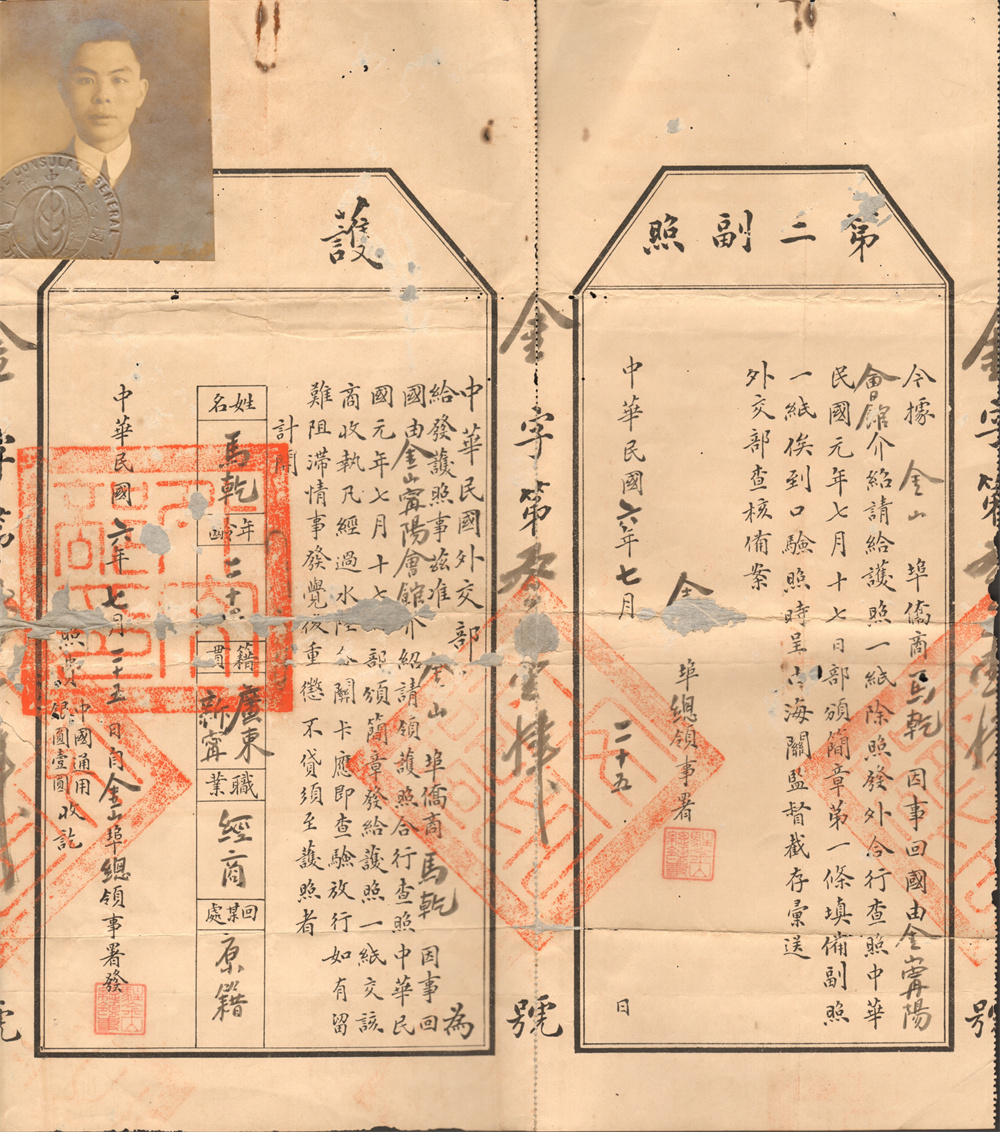 第三副照
今據 金山 埠僑商馬乾 因事回國由金山甯陽
會館介紹請給護照一紙除照發外合行查照中華
民國元年七月十七日部頒簡章第一條填備副照
一紙俟到口驗照時呈由海關監督截存彙送
外交部查核備案
金 埠總領事署
中華民國六年七月 二十五 日
金字第 壹肆 號
護
中華民國外交部 為
給發護照事茲准 金山 埠僑商馬乾 因事回
國由金山甯陽會館介紹請領護照合行查照中華民
國元年七月十七 部頒簡章發給護照一紙交該
商收執凡經過水陸各關卡應即查驗放行如有留
難阻滯情事發覺後重懲不貸須至護照者
計開
姓名 馬乾
年齡 二十
籍貫 廣東新甯
職業 經商
回某處 原籍
中華民國六年七月二十五日自金山埠總領事署發
照 中國通用銀圓壹圓收訖
CONSULATE GENERAL